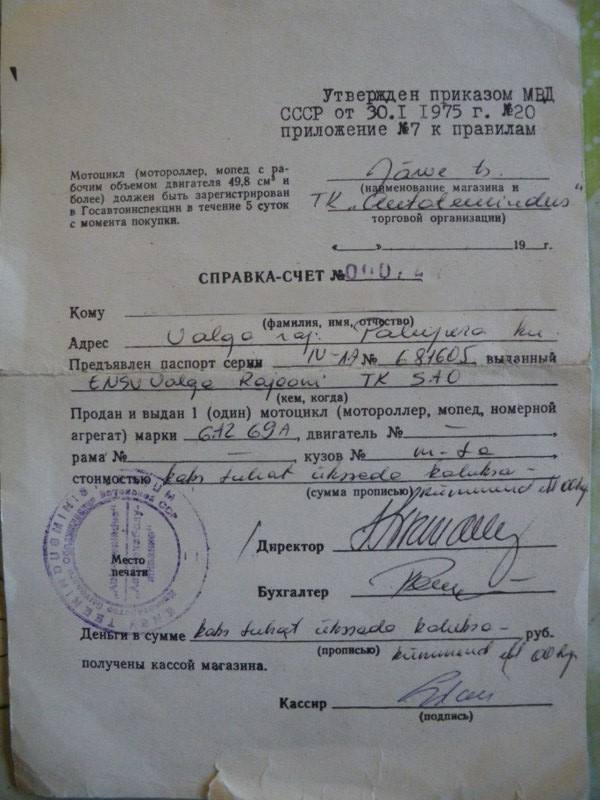 Утвержден приказом МВД
СССР от 30.I 1975 г. №20
приложение №7 к правилам
Мотоцикл (мотороллер, мопед с ра-
бочим объемом двигателя 49,8 см³ и
более) должен быть зарегистрирован
в Госавтоинспекции в течение 5 суток
с момента покупки.
(наименование магазина и
ТК
торговой организации)
« » 19 г.
СПРАВКА-СЧЕТ №
Кому
(фамилия, имя, отчество)
Адрес Valga raj.
Предъявлен паспорт серии № 681605 выданный
ENSV Valga Rajooni TK SAO
(кем, когда)
Продан и выдан 1 (один) мотоцикл (мотороллер, мопед, номерной
агрегат) марки 69A, двигатель № —
рама № — кузов №
стоимостью kaks tuhat ükssada kaheksa-
(сумма прописью) kümmend
Директор
Место
печати
Бухгалтер
Деньги в сумме kaks tuhat ükssada kaheksa- руб.
(прописью) kümmend
получены кассой магазина.
Кассир
(подпись)